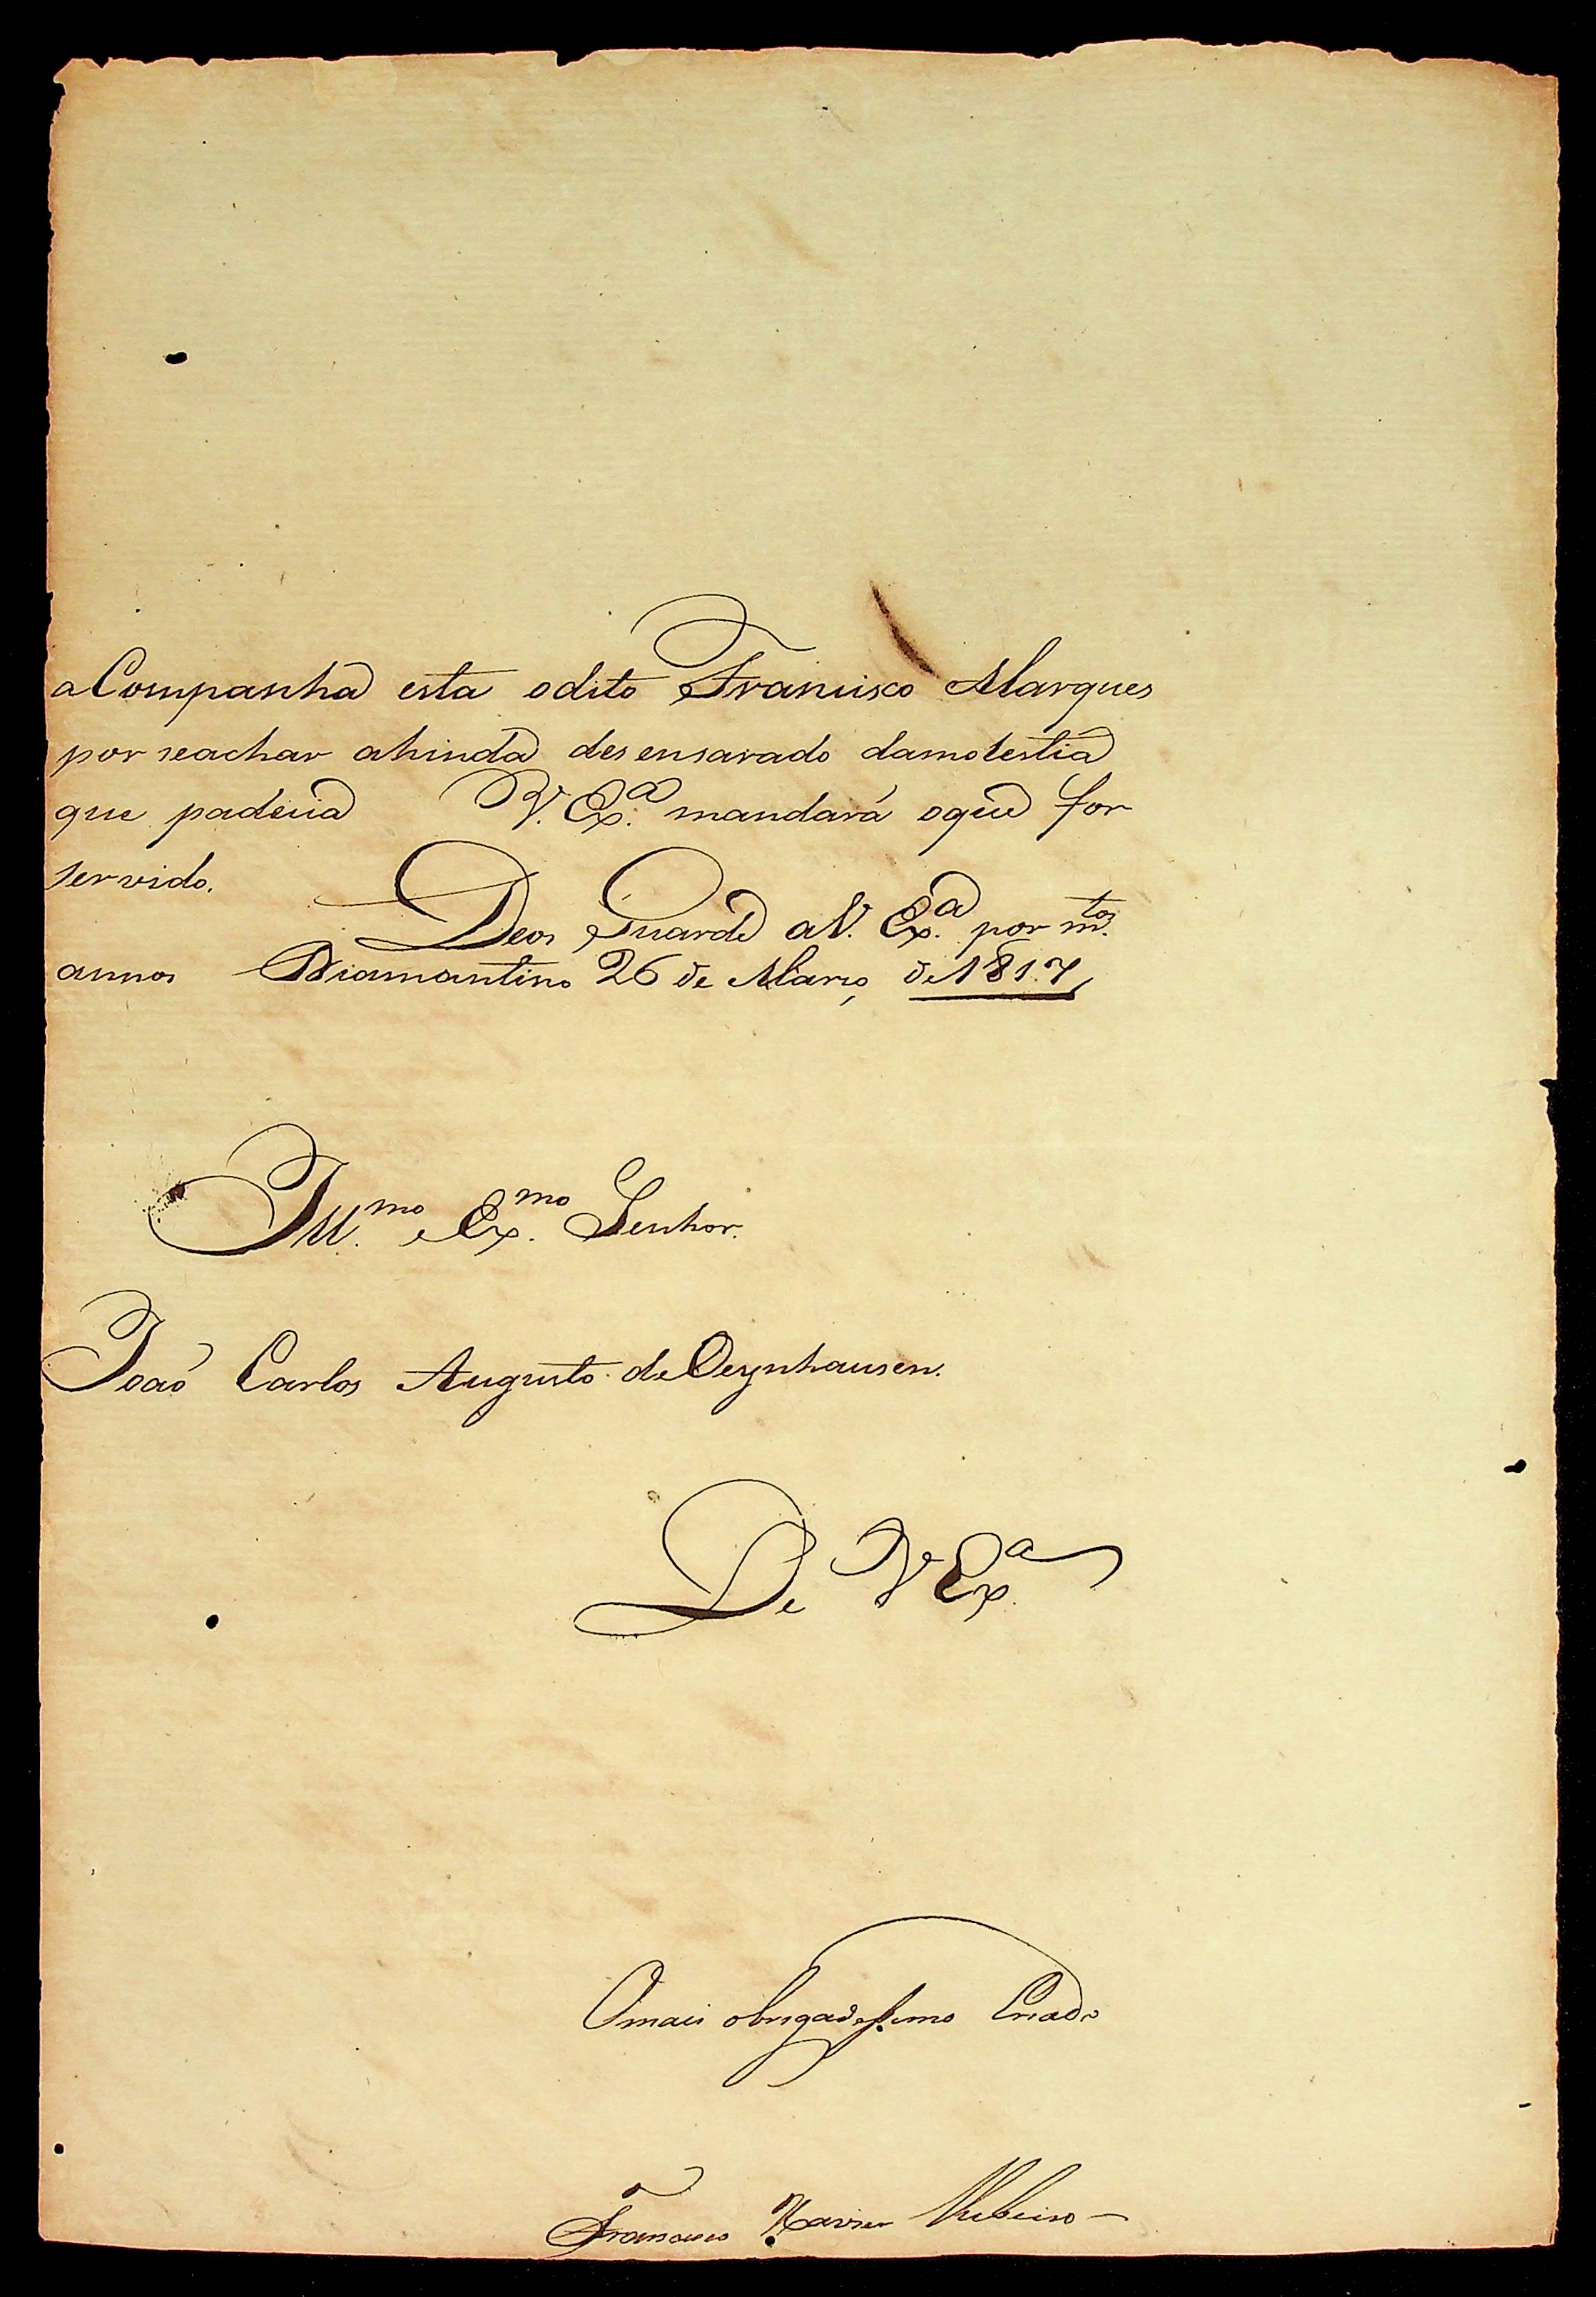 aCompanha esta odito Francisco Marques
por seachar ahinda desensarado damolestia
que padecia V. Ex.ª mandará oque for
servido.
Deos Guarde aV. Ex.ª por m.tos
annos Diamantino 26 de Março de 1817,
Ill.mo e Ex.mo Senhor.
João Carlos Augusto de Oeynhausen.
De V Ex.ª
Omais obrigadessimo Criado
Francisco Xavier Ribeiro